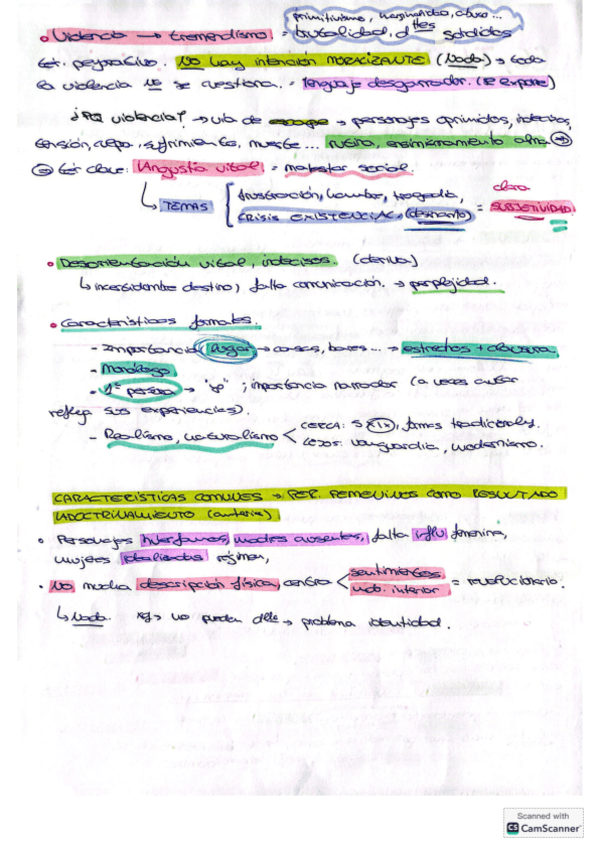 primitivismo, marginalidad, abuso...
• Violencia → tremendismo = brutalidad, dttes sórdidos
tér. peyorativo. NO hay intención MORALIZANTE (Nada) → toda
la violencia NO se cuestiona. - lenguaje desgarrador. (se expone)
¿Por violencia? → vía de escape → personajes oprimidos, indecisos,
tensión, culpa, sufrimientos, muerte... rutina, ensimismamiento
tér. clave: Angustia vital = malestar social.
↳ TEMAS [frustración, hambre, tragedia,
CRISIS EXISTENCIAL, (desencanto) = clara SUBJETIVIDAD
• DESORIENTACIÓN VITAL, indecisos. (deriva)
↳ incertidumbre destino, falta comunicación. → perplejidad.
• Características formales.
- Importancia lugar → casas, bares... → estrechos + obscuros
- Monólogo
- 1ª persona → "yo"; importancia narrador (a veces autor
refleja sus experiencias).
- Realismo, naturalismo < CERCA: S XIX, formas tradicionales.
LEJOS: vanguardia, modernismo.
CARACTERÍSTICAS COMUNES → PER. FEMENINOS COMO RESULTADO
ADOCTRINAMIENTO (autoría)
• Personajes huérfanos, madres ausentes, falta influ femenina,
mujeres idealizadas régimen,
• NO mucha descripción física, centra < sentimientos
mdo. interior = revolucionario.
↳ Nada. no pueden → problema identidad.
Scanned with
CS CamScanner